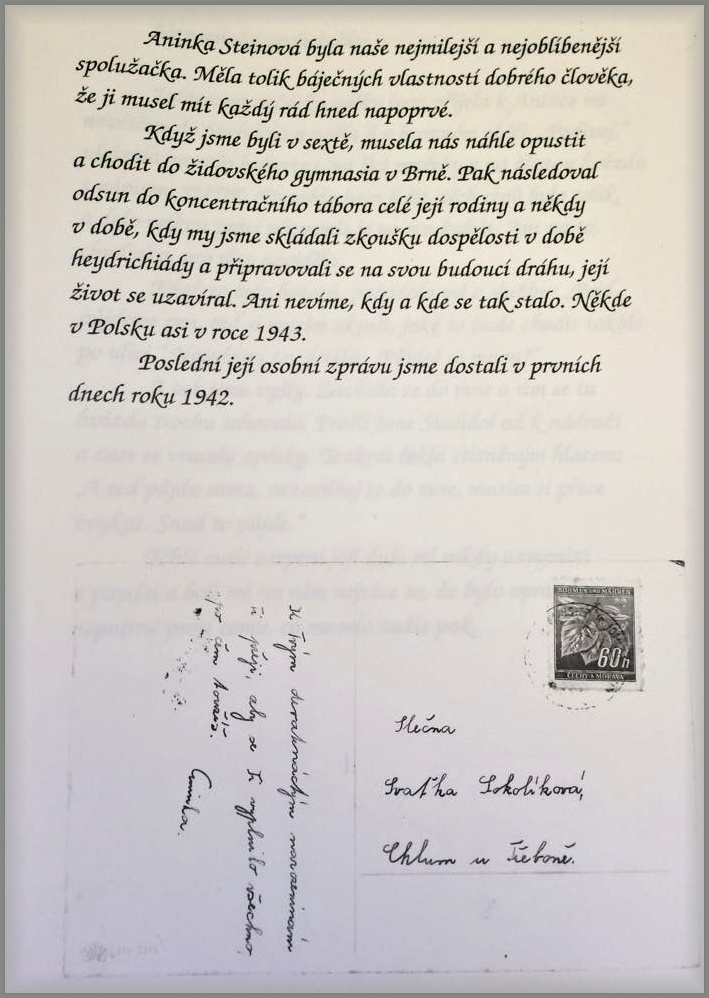 Aninka Steinová byla naše nejmilejší a nejoblíbenější
spolužačka. Měla tolik báječných vlastností dobrého člověka,
že ji musel mít každý rád hned napoprvé.
Když jsme byli v sextě, musela nás náhle opustit
a chodit do židovského gymnasia v Brně. Pak následoval
odsun do koncentračního tábora celé její rodiny a někdy
v době, kdy my jsme skládali zkoušku dospělosti v době
heydrichiády a připravovali se na svou budoucí dráhu, její
život se uzavíral. Ani nevíme, kdy a kde se tak stalo. Někde
v Polsku asi v roce 1943.
Poslední její osobní zprávu jsme dostali v prvních
dnech roku 1942.
K Tvým devatenáctým narozeninám
Ti přeji, aby se Ti vyplnilo všechno
po čem toužíš.
Aninka.
BÖHMEN UND MÄHREN
60h
ČECHY A MORAVA
Slečna
Svaťka Sokolíková,
Chlum u Třeboně.